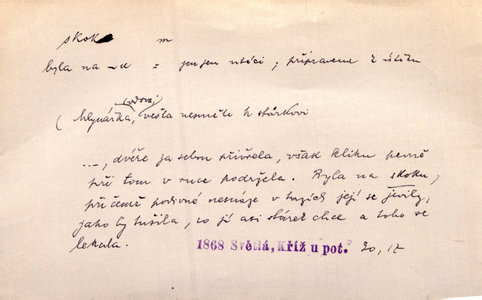 skok m
byla na -u = jen jen utéci, připravena k útěku
(Mlynářka, vešla nesměle k stárkovi
..., dvéře za sebou přivřela, však kliku pevně
při tom v ruce podržela. Byla na skoku,
při čemž podivné nesnáze v tazích její se jevily,
jako by tušila, co jí asi stárek chce a toho se
lekala. 1868 Světlá, Kříž u pot. 30, 17